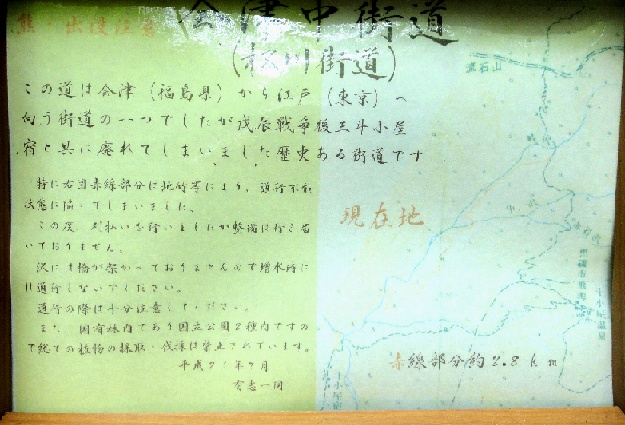 熊・出没注意
会津中街道
(松川街道)
この道は会津(福島県)から江戸(東京)へ
向う街道の一つでしたが戊辰戦争後三斗小屋
宿と共に廃れてしまいました歴史ある街道です
特に右図赤線部分は
状態に陥ってしまいました。
この度、刈払いを行いましたが整備は行き届
いておりません。
沢には橋が架かっておりませんので増水時に
は通行しないでください。
通行の際は十分注意してください。
また、国有林内であり国立公園2種内ですの
で総ての植物の採取・伐採は禁止されています。
平成21年7月
有志一同
現在地
赤線部分約2.8km
流石山
三斗小屋温泉
三斗小屋